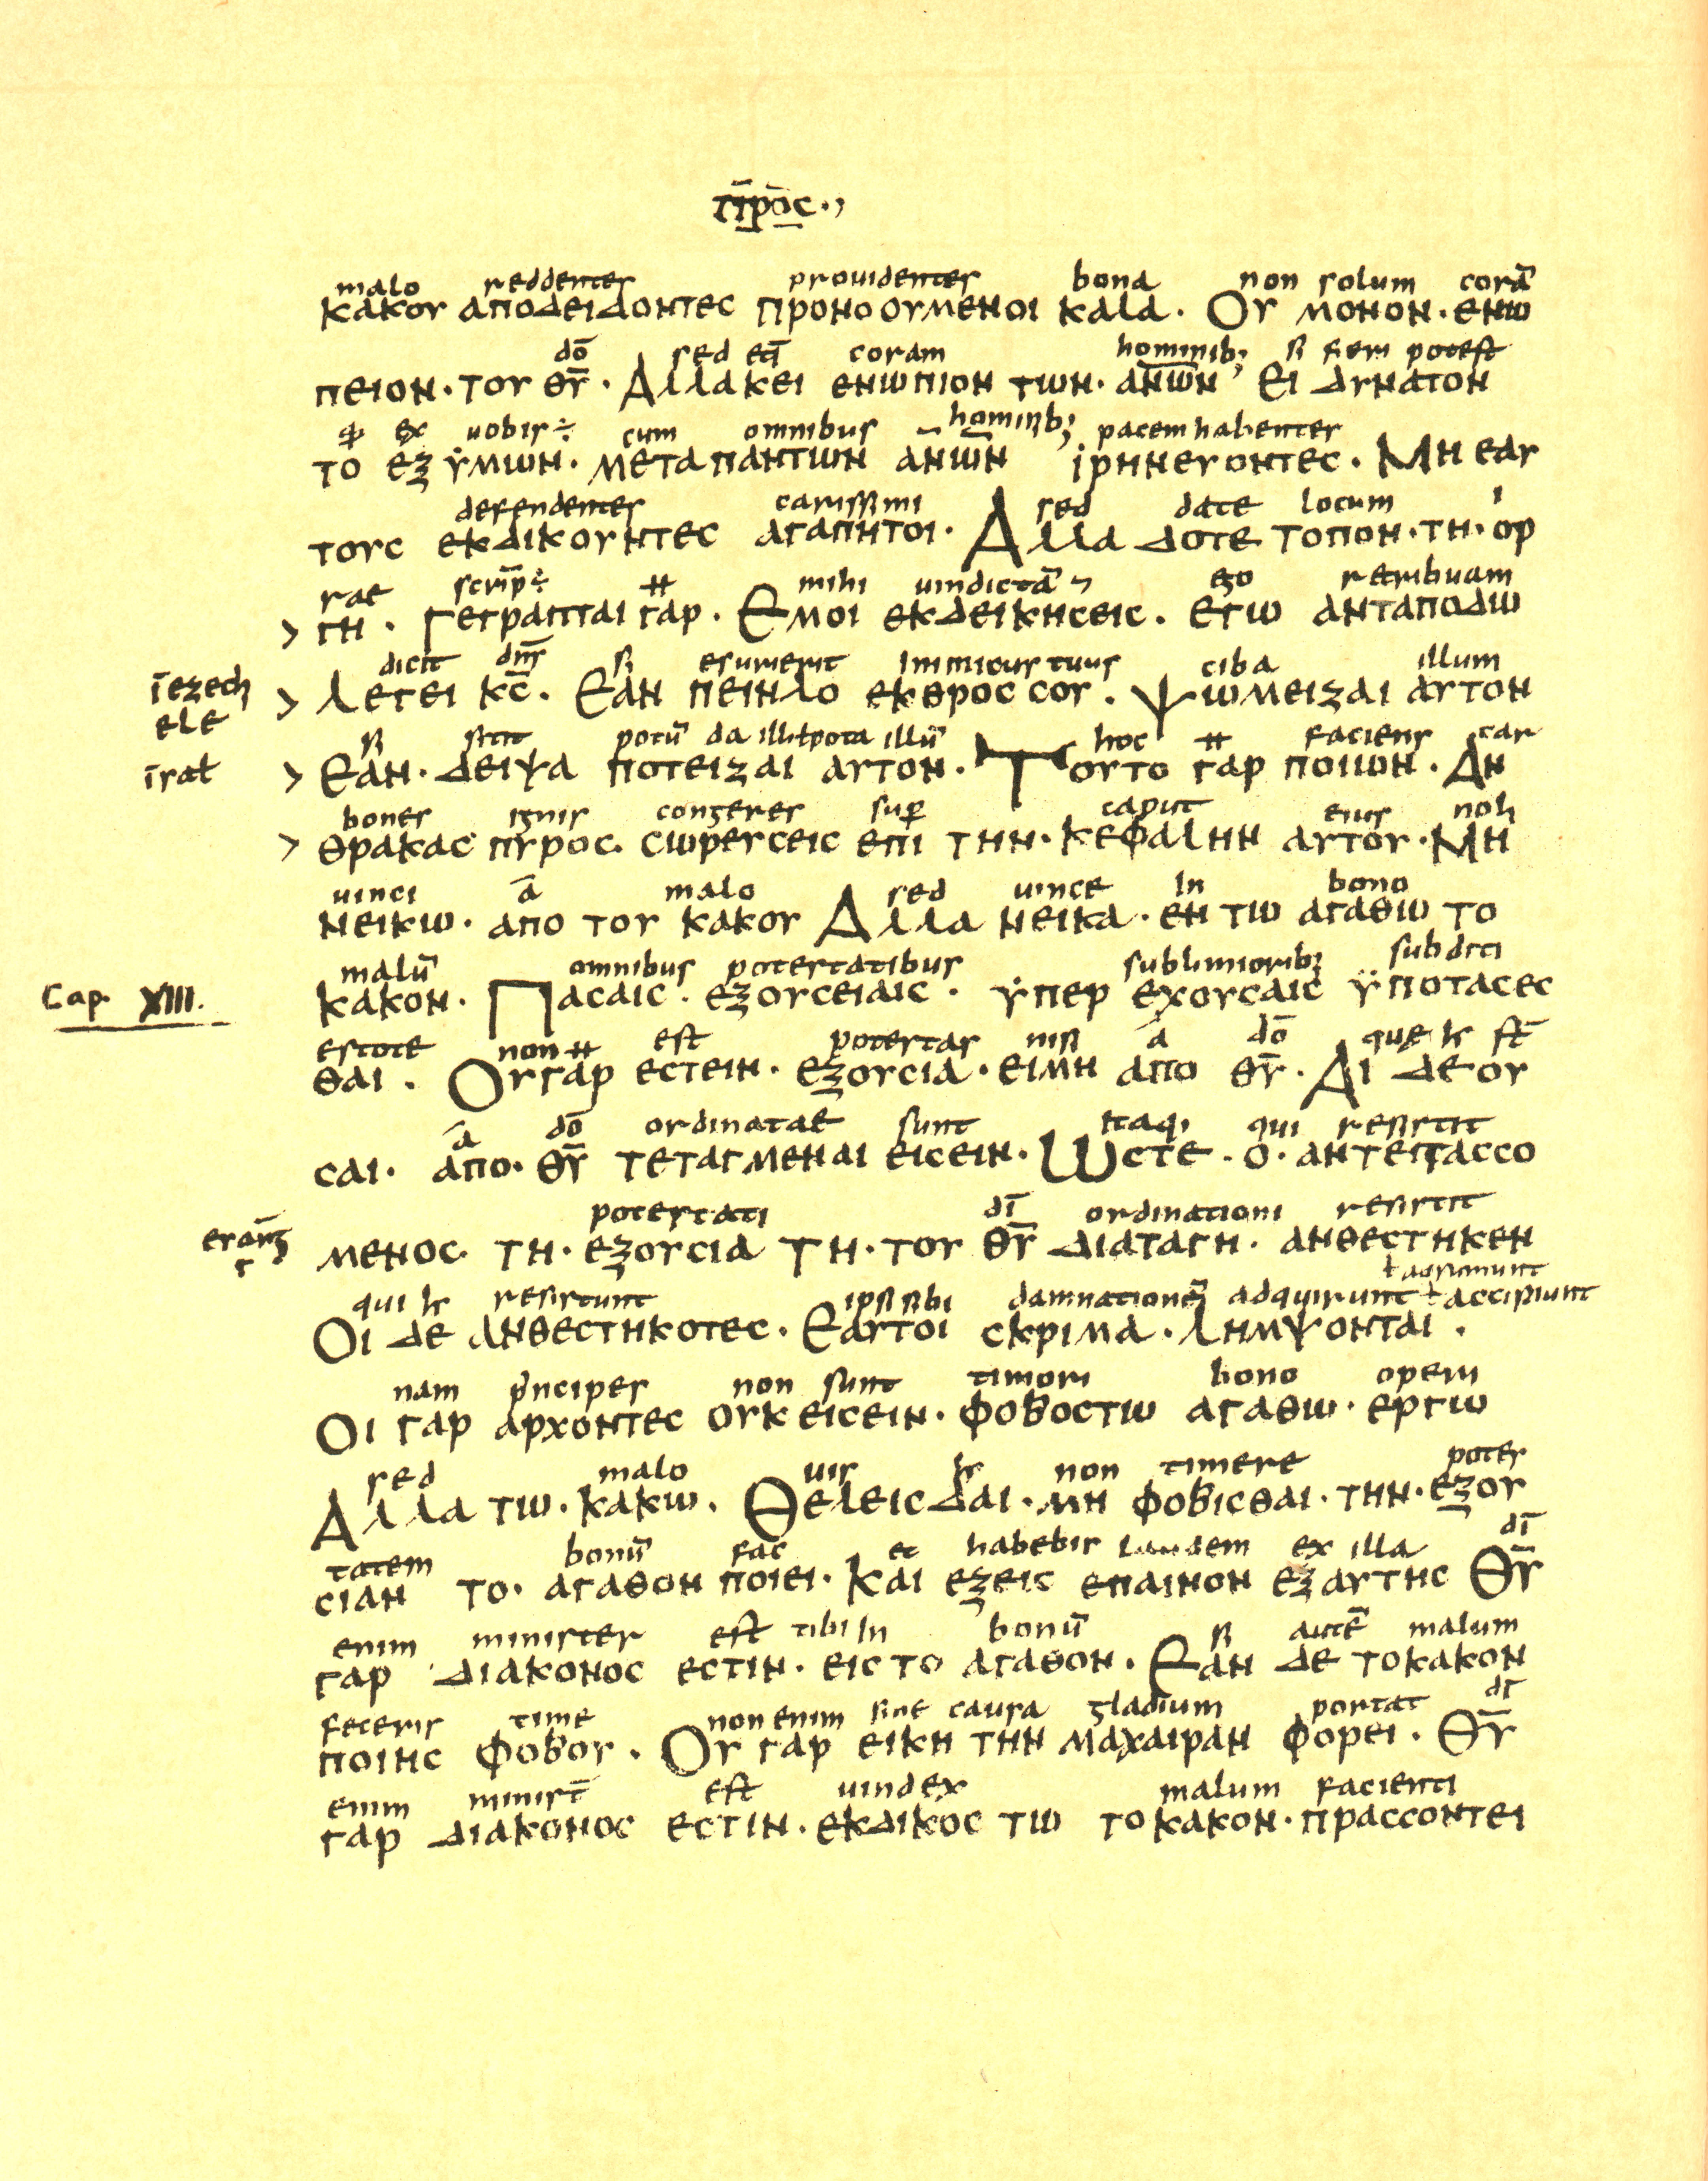 π̄ρο̄ς.,
malo reddentes prouidentes bona non solum corā
κακου αποδειδοντες προνοουμενοι καλα· Ου μονον· ενω
dō sed etī coram hominib; si fieri potest
πειον· του θ̄ῡ· Αλλακει ενωπιον των· αν̄ω̄ν̄ Ει δυνατον
qđ ex uobis ÷ cum omnibus hominib; pacem habentes
το εξ ϋμων· μεταπαντων αν̄ω̄ν ιρηνευοντες· Μη εαυ
defendentes carissimi sed date locum i
τους εκδικουντες αγαπητοι· Αλλα δοτε τοπον· τη· ορ
rae scrip̄ ÷ ++ mihi uindictā ego retribuam
> γη· Γεγραπται γαρ· Εμοι εκδεικησεις· εγω ανταποδω
dicit dn̄s si esurierit Inimicus tuus ciba illum
iezech ele
> λεγει κ̄ς̄· Εαν πεινλο εκθρος σου· Ψωμειζαι αυτον
si sitit potū da illi ł pota illū hoc ++ faciens car
> Εαν· δειψα ποτειζαι αυτον· Τουτο γαρ ποιων· Αν
bones ignis congeres sup̄ caput eius noli
> θρακας πυρος· σωρευσεις επι την· κεφαλην αυτου· Μη
uinci ā malo sed uince In bono
νεικω· απο του κακου Αλλα νεικα· εν τω αγαθω το
malū omnibus potestatibus sublimiorib; subditi
Cap. XIII.
κακον· Πασαις· εξουσειαις· ϋπερ εχουσαις ϋποτασες
estote non ++ est potestas nisi ā dō
θαι· Ουγαρ εστειν· εξουσια· ειμη απο θ̄ῡ· Αι δε ου
ā dō ordinatae sunt itaq; qui resistit
σαι· απο· θ̄ῡ τεταγμεναι εισειν· Ωστε· ο· αντειτασσο
potestati dī ordinationi resistit
μενος· τη· εξουσια Τη· του θ̄ῡ διαταγη· ανθεστηκεν
qui resistunt ipsi sibi damnationē adquirunt ł accipiunt
Οι δε ανθεστηκοτες· Εαυτοι σκριμα· λημψονται·
nam principes non sunt timori bono operi
Οι γαρ αρχοντες ουκ εισειν· φοβοςτω αγαθω· εργω
sed malo uis non timere potes
Αλλα τω· κακω· Θελεις δαι· μη φοβισθαι· την· εξου
tatem bonū fac et habebis laudem ex illa dī
σιαν το· αγαθον ποιει· Και εξεις επαινον εξ αυτης Θ̄ῡ
enim minister est tibi In bonū si autē malum
γαρ διακονος εστιν· εις το αγαθον· Εαν δε τοκακον
feceris time non enim sine causa gladium portat dī
ποιης φοβου· Ου γαρ εικη την μαχαιραν φορει· Θ̄ῡ
enim minist̄ est uindex malum facienti
γαρ διακονος εστιν· εκδικος τω το κακον· πρασσοντει